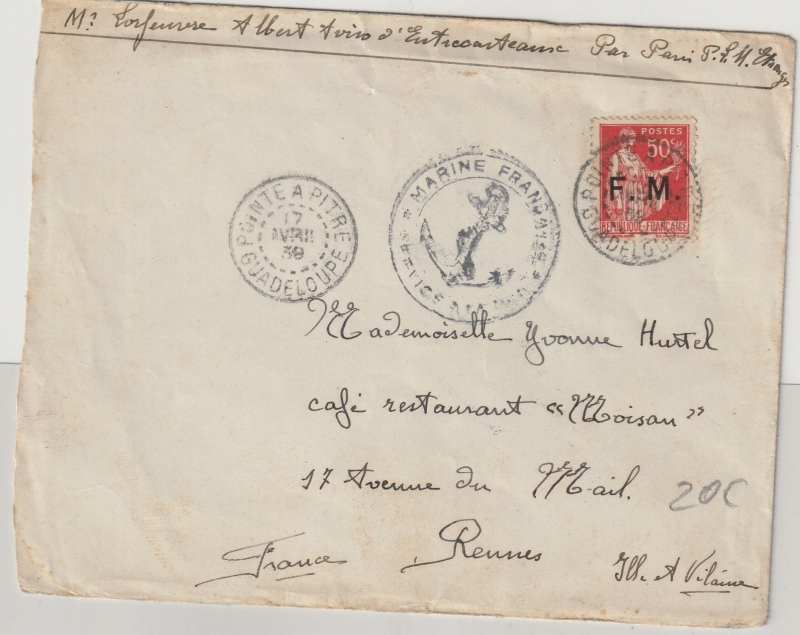 Mr Lorfeuvre Albert Aviso d'Entrecasteaux Par Paris P.L.M. Etranger
POSTES
50c
F. M.
REPUBLIQUE FRANÇAISE
GUADELOUPE
MARINE FRANÇAISE
SERVICE A LA MER
POINTE A PITRE
17
AVRIL
39
GUADELOUPE
Mademoiselle Yvonne Hurtel
café restaurant "Moisan"
17 Avenue du Mail.
20C
France Rennes Ille et Vilaine